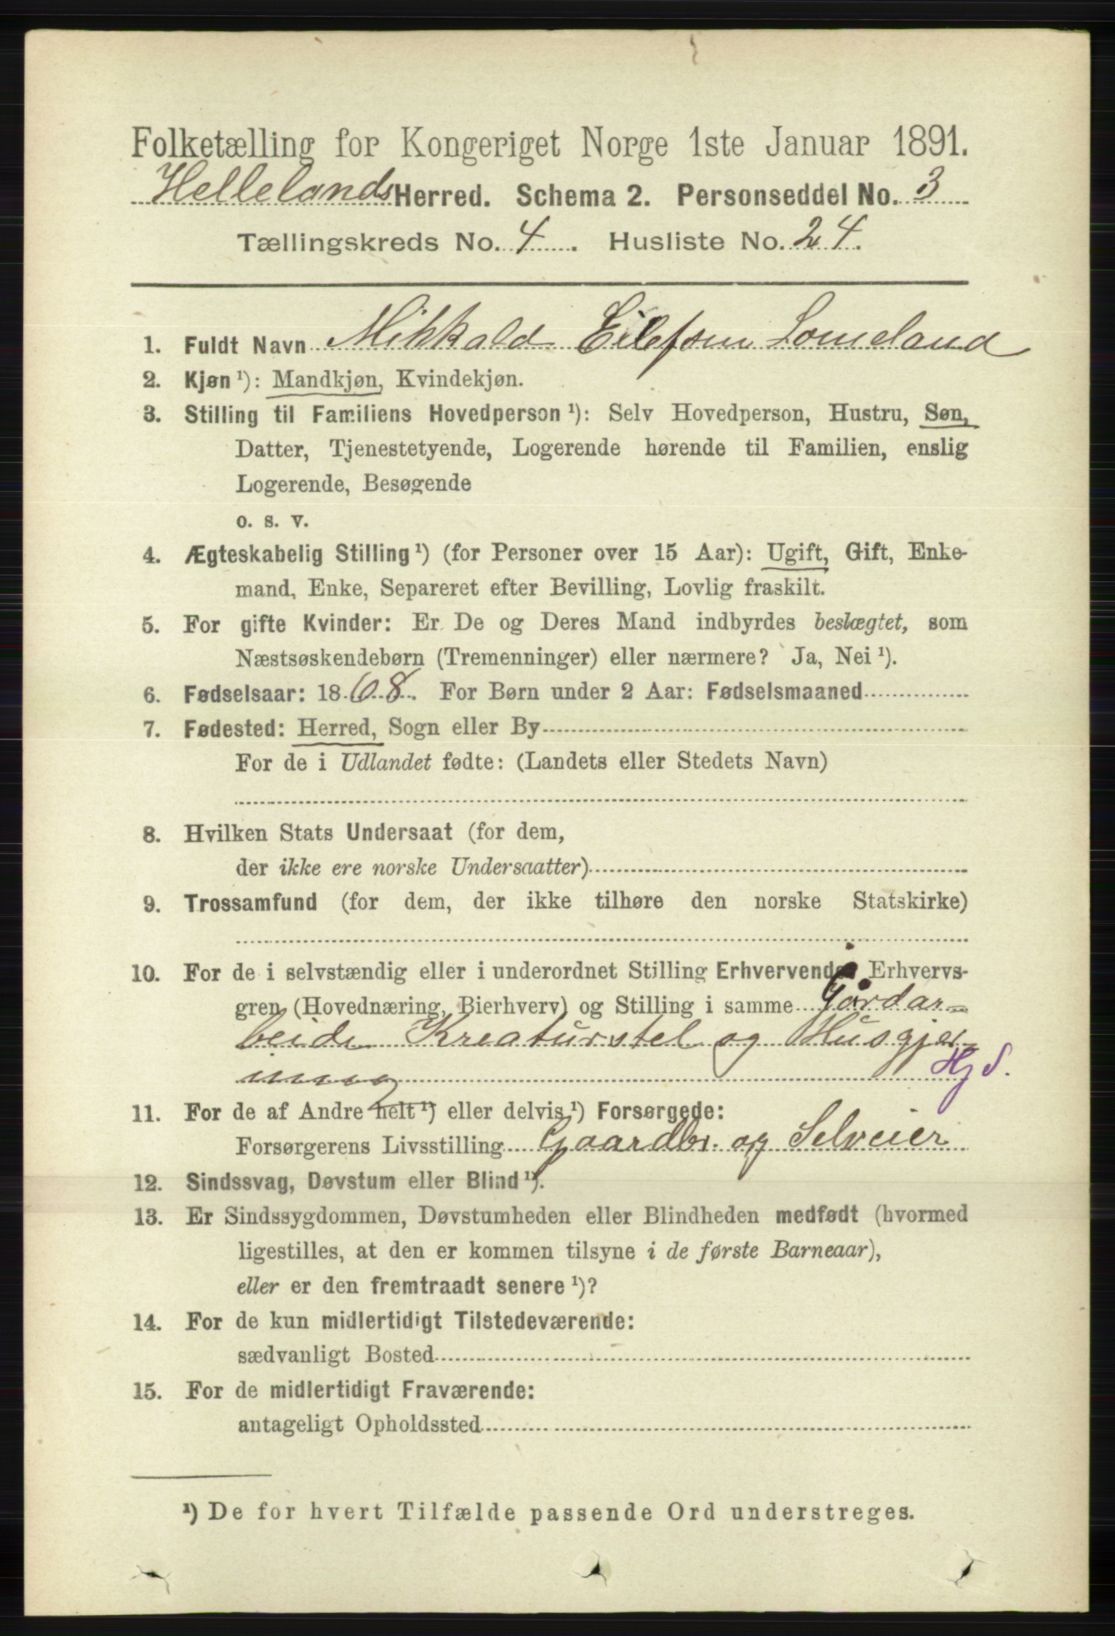 Folketælling for Kongeriget Norge 1ste Januar 1891.
Hellelands Herred. Schema 2. Personseddel No. 3
Tællingskreds No. 4. Husliste No. 24.
1. Fuldt Navn Mikkald Eilefsen Lomeland
2. Kjøn ¹): Mandkjøn, Kvindekjøn.
3. Stilling til Familiens Hovedperson ¹): Selv Hovedperson, Hustru, Søn,
Datter, Tjenestetyende, Logerende hørende til Familien, enslig
Logerende, Besøgende
o. s. v.
4. Ægteskabelig Stilling ¹) (for Personer over 15 Aar): Ugift, Gift, Enke-
mand, Enke, Separeret efter Bevilling, Lovlig fraskilt.
5. For gifte Kvinder: Er De og Deres Mand indbyrdes beslægtet, som
Næstsøskendebørn (Tremenninger) eller nærmere? Ja, Nei ¹).
6. Fødselsaar: 1868. For Børn under 2 Aar: Fødselsmaaned
7. Fødested: Herred, Sogn eller By
For de i Udlandet fødte: (Landets eller Stedets Navn)
8. Hvilken Stats Undersaat (for dem,
der ikke ere norske Undersaatter)
9. Trossamfund (for dem, der ikke tilhøre den norske Statskirke)
10. For de i selvstændig eller i underordnet Stilling Erhvervende: Erhvervs-
gren (Hovednæring, Bierhverv) og Stilling i samme Gårdar-
beide Kreaturstel og Husgjer-
ning Hj S.
11. For de af Andre helt ¹) eller delvis ¹) Forsørgede:
Forsørgerens Livsstilling Gaardbr. og Selveier
12. Sindssvag, Døvstum eller Blind ¹).
13. Er Sindssygdommen, Døvstumheden eller Blindheden medfødt (hvormed
ligestilles, at den er kommen tilsyne i de første Barneaar),
eller er den fremtraadt senere ¹)?
14. For de kun midlertidigt Tilstedeværende:
sædvanligt Bosted
15. For de midlertidigt Fraværende:
antageligt Opholdssted
¹) De for hvert Tilfælde passende Ord understreges.